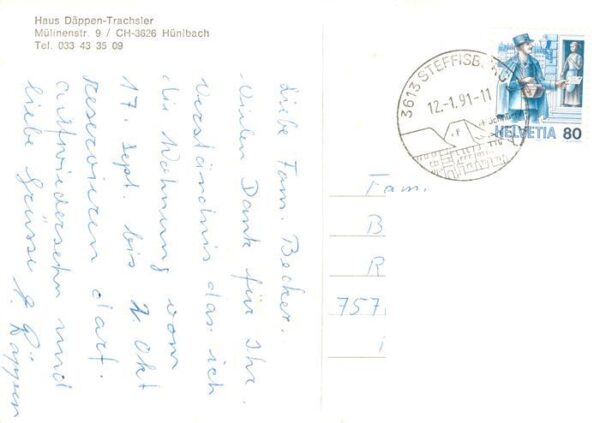 Haus Däppen-Trachsler
Mülinenstr. 9 / CH-3626 Hünibach
Tel. 033 43 35 09
Liebe Fam. Becker.
Vielen Dank für Ihr
Verständnis das ich
die Wohnung vom
17. Sept. bis 2. Okt
reservieren darf.
aufwiedersehn und
liebe Grüsse
3613 STEFFISBURG
12.-1.91-11
HELVETIA 80
Fam.
B
R
757